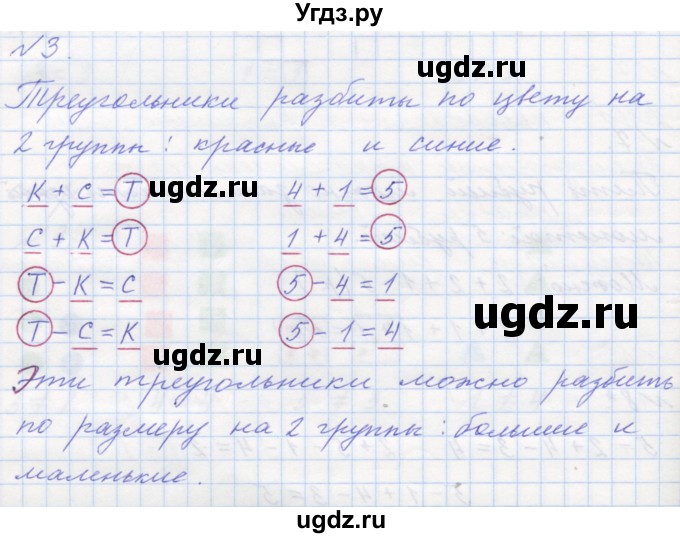 Угдз.ру
№3.
ugdz.ru
Треугольники разбиты по цвету на
2 группы: красные и синие.
ugdz.ru
К + С = Т 4 + 1 = 5
ugdz.ru
С + К = Т 1 + 4 = 5
Т - К = С 5 - 4 = 1
Т - С = К 5 - 1 = 4
ugdz.ru
Эти треугольники можно разбить
ugdz.ru
по размеру на 2 группы: большие и
маленькие.
ugdz.ru
ugdz.ru